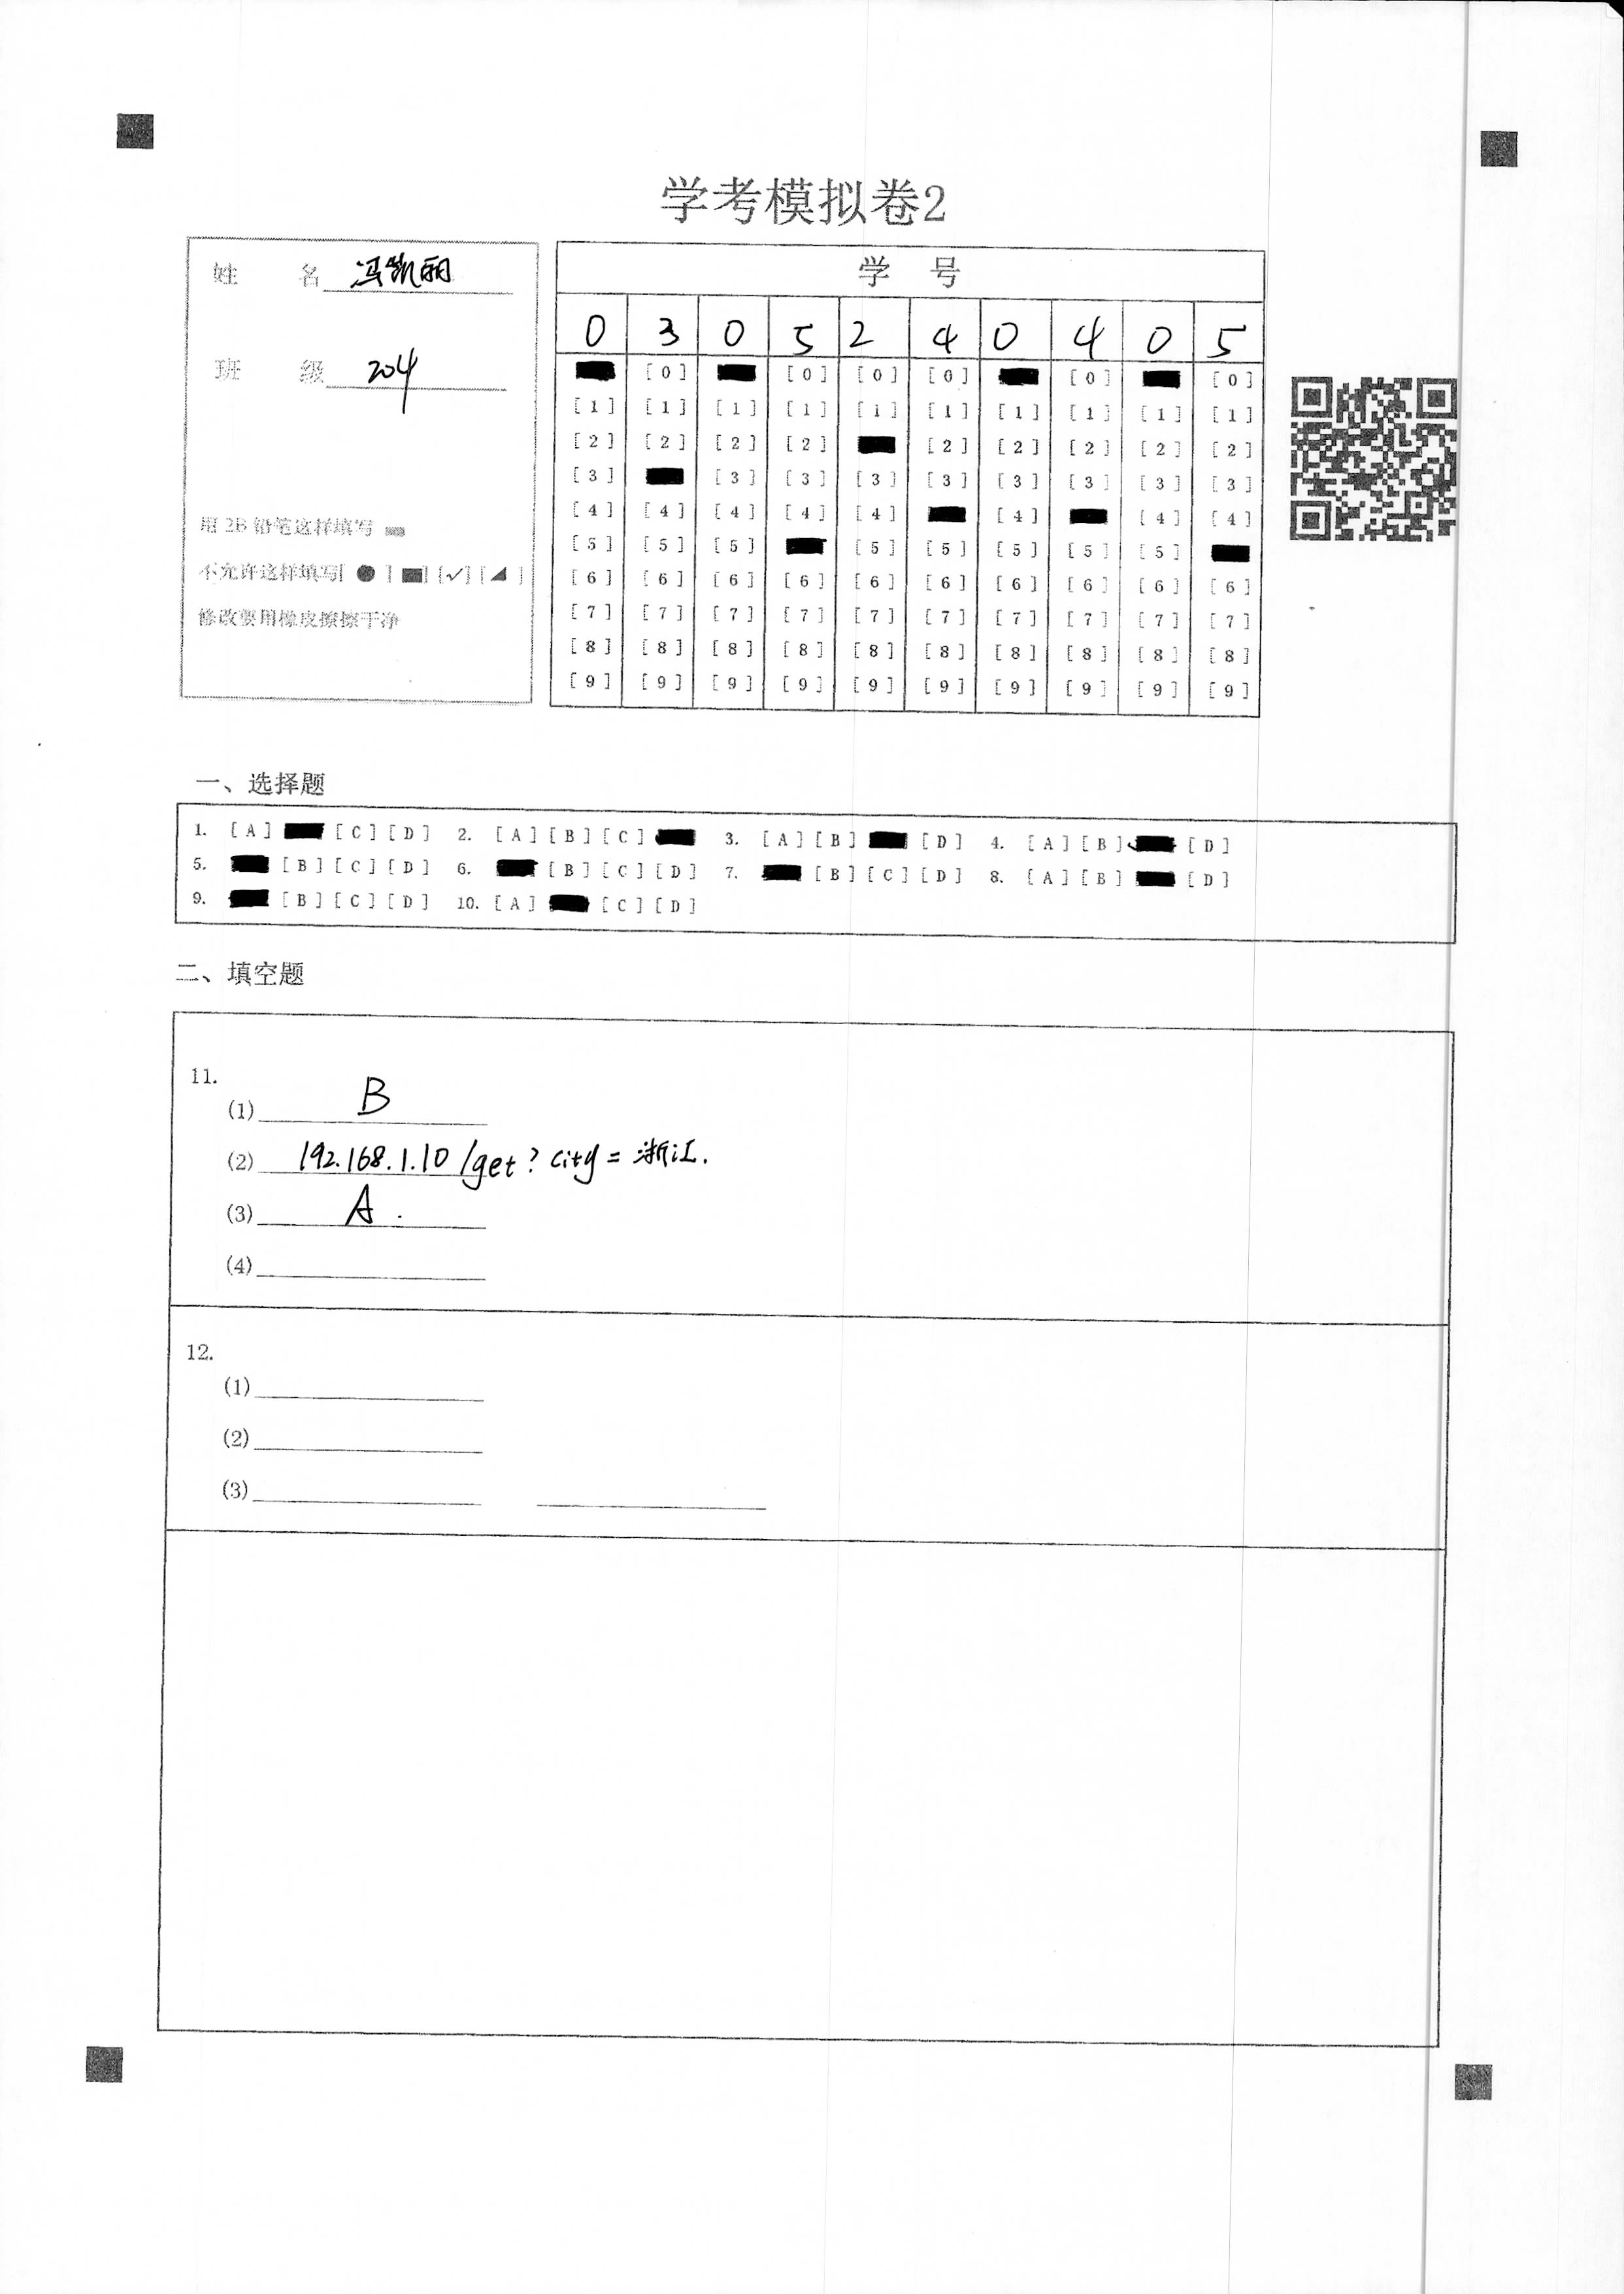 学考模拟卷2
姓 名 冯凯丽
班 级 204
用 2B 铅笔这样填写
不允许这样填写[ ● ] [■] [✓] [◢ ]
修改要用橡皮擦擦干净
学 号
0 3 0 5 2 4 0 4 0 5
[0] [0] [0] [0] [0] [0]
[1] [1] [1] [1] [1] [1] [1] [1] [1] [1]
[2] [2] [2] [2] [2] [2] [2] [2] [2]
[3] [3] [3] [3] [3] [3] [3] [3] [3]
[4] [4] [4] [4] [4] [4] [4] [4]
[5] [5] [5] [5] [5] [5] [5] [5]
[6] [6] [6] [6] [6] [6] [6] [6] [6] [6]
[7] [7] [7] [7] [7] [7] [7] [7] [7] [7]
[8] [8] [8] [8] [8] [8] [8] [8] [8] [8]
[9] [9] [9] [9] [9] [9] [9] [9] [9] [9]
一、选择题
1. [A] [C] [D] 2. [A] [B] [C] 3. [A] [B] [D] 4. [A] [B] [D]
5. [B] [C] [D] 6. [B] [C] [D] 7. [B] [C] [D] 8. [A] [B] [D]
9. [B] [C] [D] 10. [A] [C] [D]
二、填空题
11.
(1) B
(2) 192.168.1.10/get?city=浙江.
(3) A.
(4)
12.
(1)
(2)
(3)